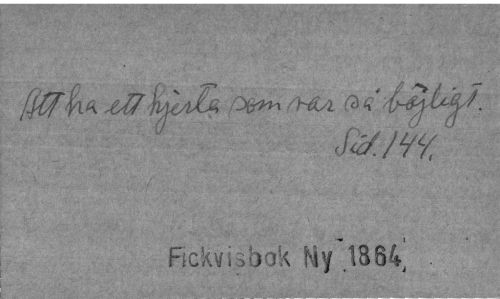 Att ha ett hjerta som var så böjligt.
Sid. 144.
Fickvisbok Ny 1864,